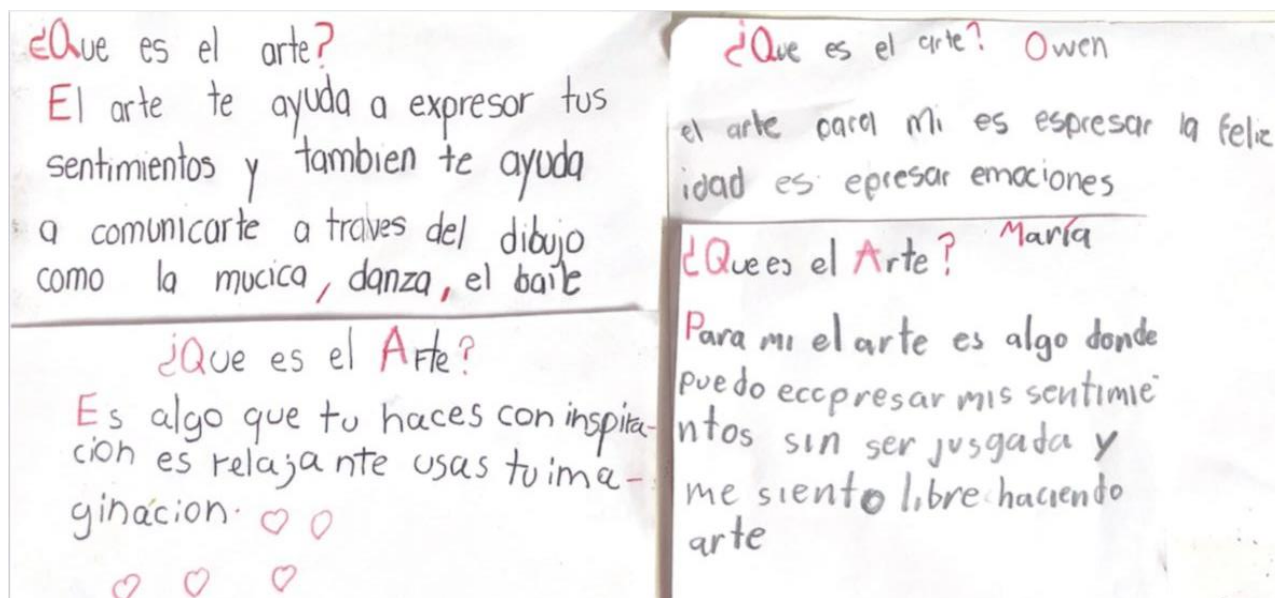 ¿Que es el arte?
El arte te ayuda a expresor tus
sentimientos y tambien te ayuda
a comunicarte a traves del dibujo
como la mucica, danza, el baile
¿Que es el Arte?
Es algo que tu haces con inspira-
ción es relajante usas tu ima-
ginacion.
¿Que es el arte? Owen
el arte para mi es espresar la felic
idad es epresar emociones
¿Que es el Arte? María
Para mi el arte es algo donde
puedo eccpresar mis sentimie
ntos sin ser jusgada y
me siento libre haciendo
arte